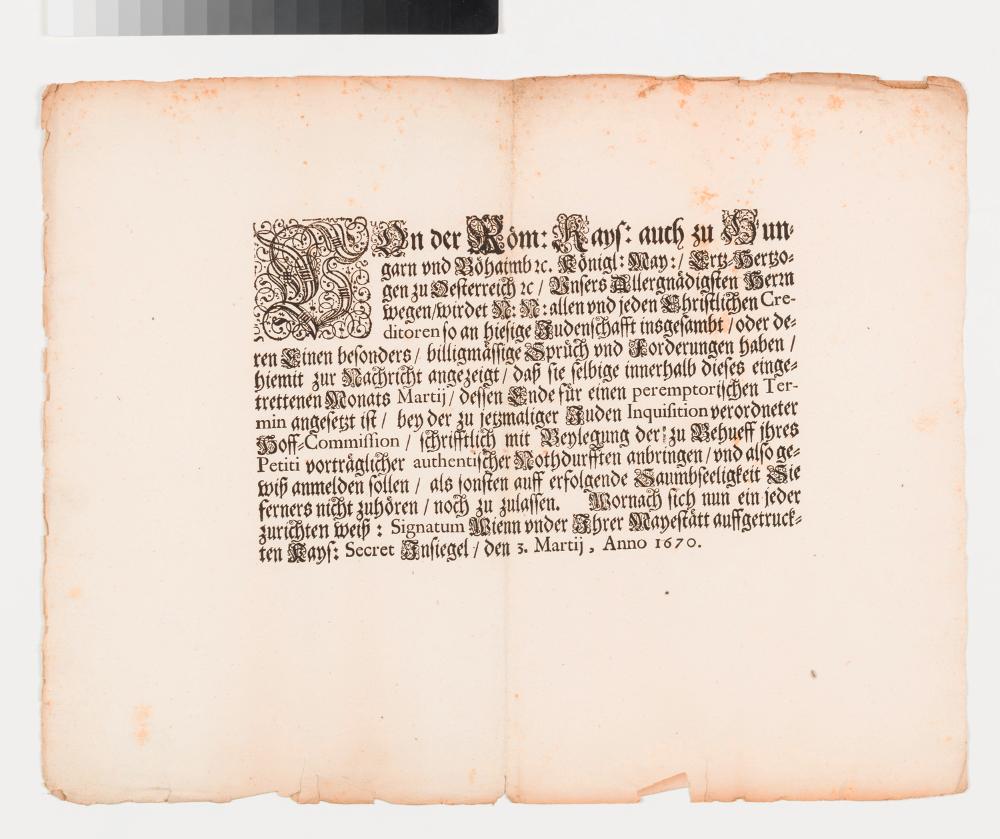 VOn der Röm: Kays: auch zu Hun-
garn vnd Böhaimb ꝛc. Königl: May:/ Ertz-Hertzo-
gen zu Oesterreich ꝛc / Vnsers Allergnädigsten Herrn
wegen/wirdet N: N: allen vnd jeden Christlichen Cre-
ditoren so an hiesige Judenschafft insgesambt / oder de-
ren Einen besonders / billigmässige Sprüch vnd Forderungen haben /
hiemit zur Nachricht angezeigt / daß sie selbige innerhalb dieses einge-
trettenen Monats Martij / dessen Ende für einen peremptorischen Ter-
min angesetzt ist / bey der zu jetzmaliger Juden Inquisition verordneter
Hoff-Commission / schrifftlich mit Beylegung der: zu Behueff jhres
Petiti vorträglicher authentischer Nothdurfften anbringen / vnd also ge-
wiß anmelden sollen / als sonsten auff erfolgende Saumbseeligkeit Sie
ferners nicht zuhören / noch zu zulassen. Wornach sich nun ein jeder
zurichten weiß : Signatum Wienn vnder Jhrer Mayestätt auffgetruck-
ten Kays: Secret Insiegel / den 3. Martij , Anno 1670.